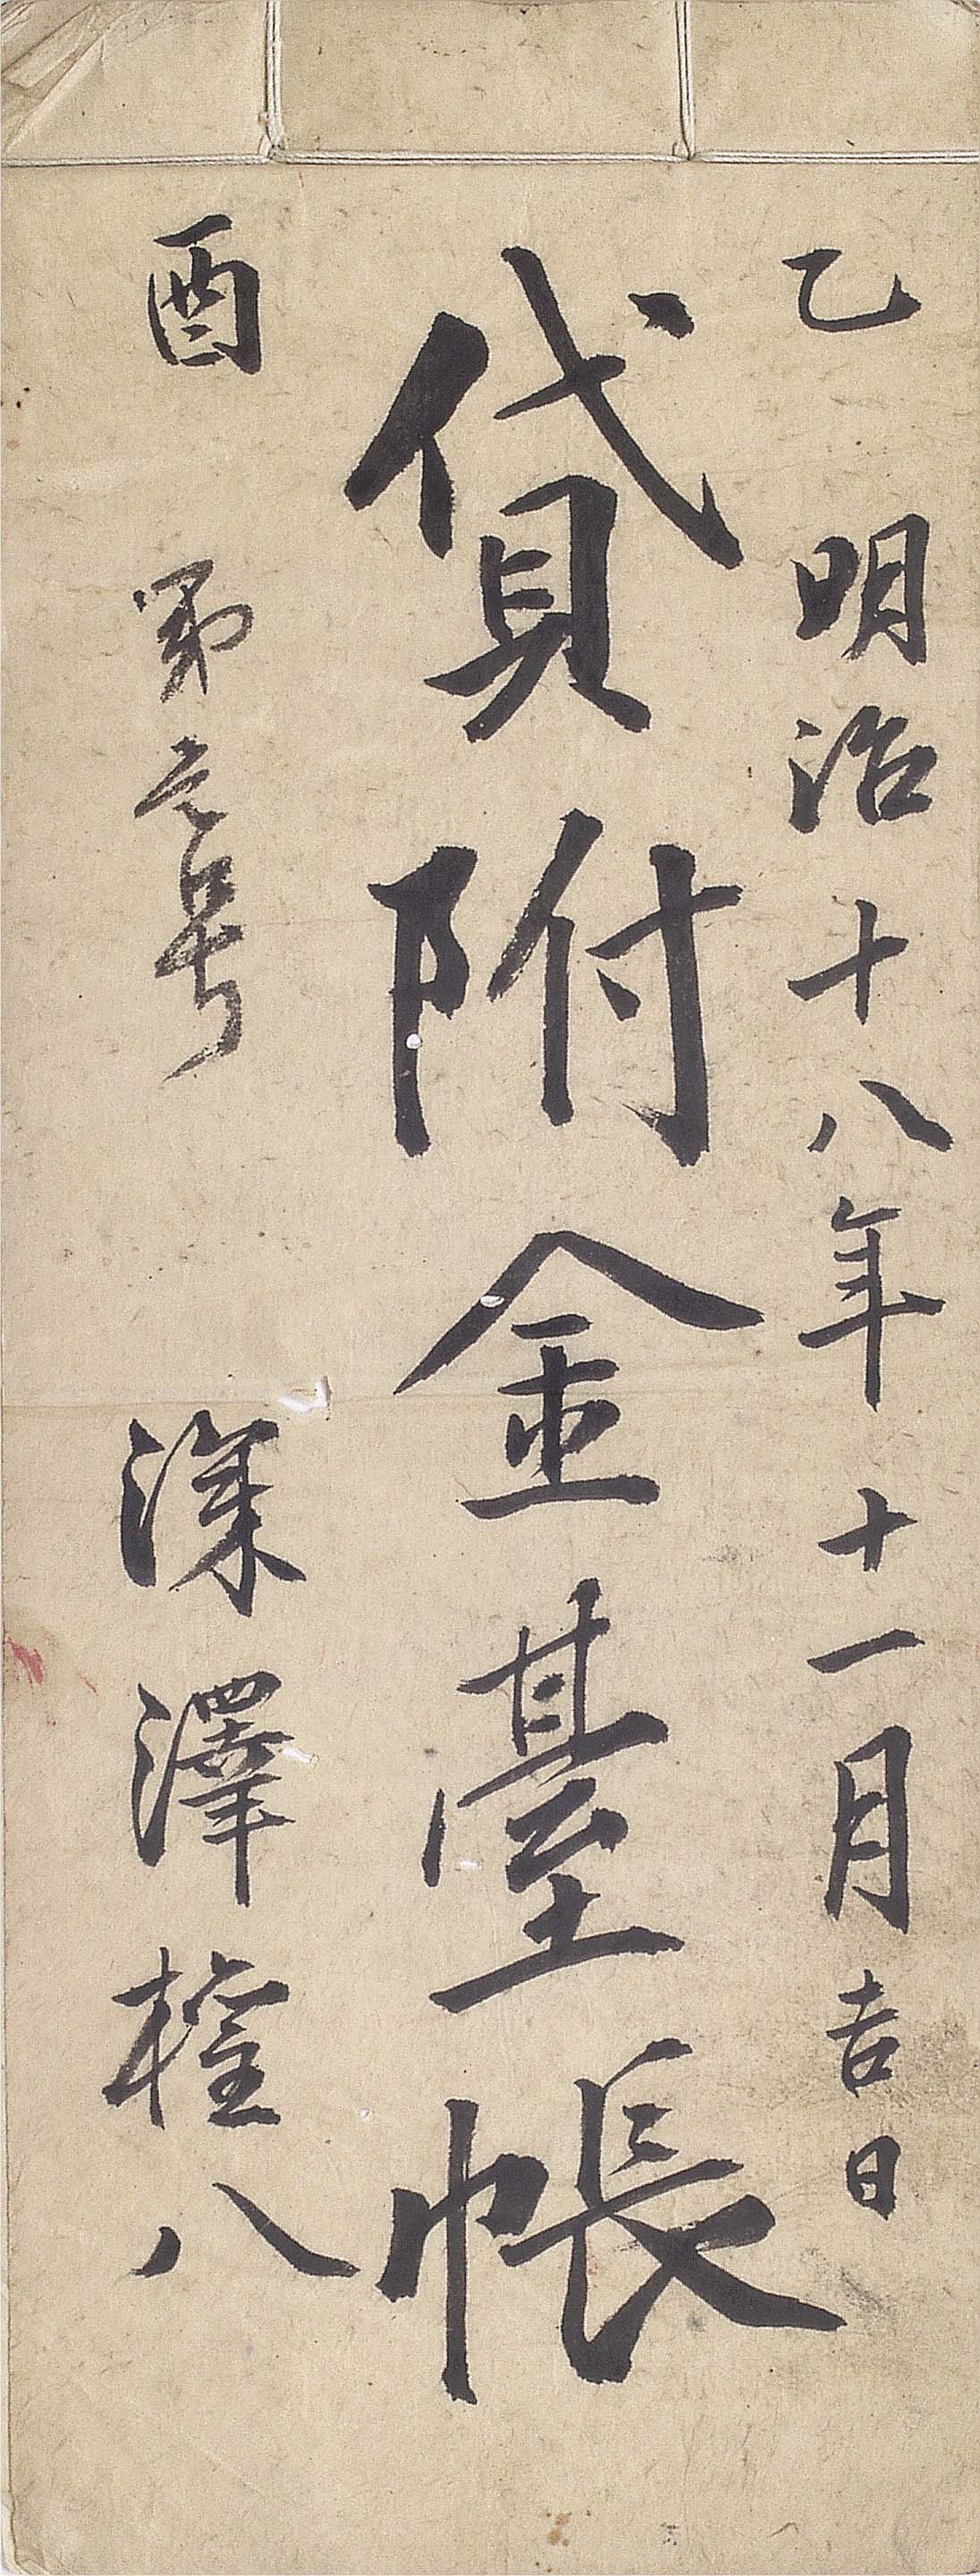 乙 明治十八年十一月吉日
貸附金臺帳
酉 第壱号 深澤権八